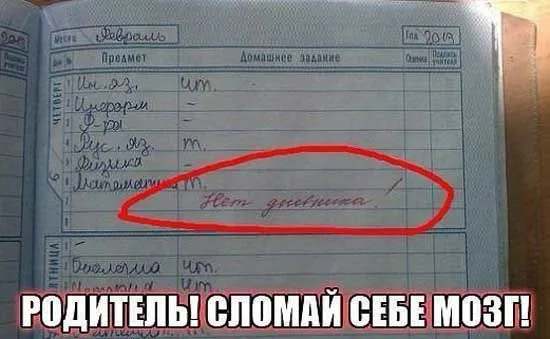 Месяц Февраль Год 2019
Предмет Домашнее задание Оценка Подпись учителя
ЧЕТВЕРГ
1 Ин. яз. чт.
Информ –
Ф-ра –
Рус. яз. т.
Физика –
6 Математика т.
Нет дневника!
ПЯТНИЦА
–
Биология чт.
История чт.
РОДИТЕЛЬ! СЛОМАЙ СЕБЕ МОЗГ!